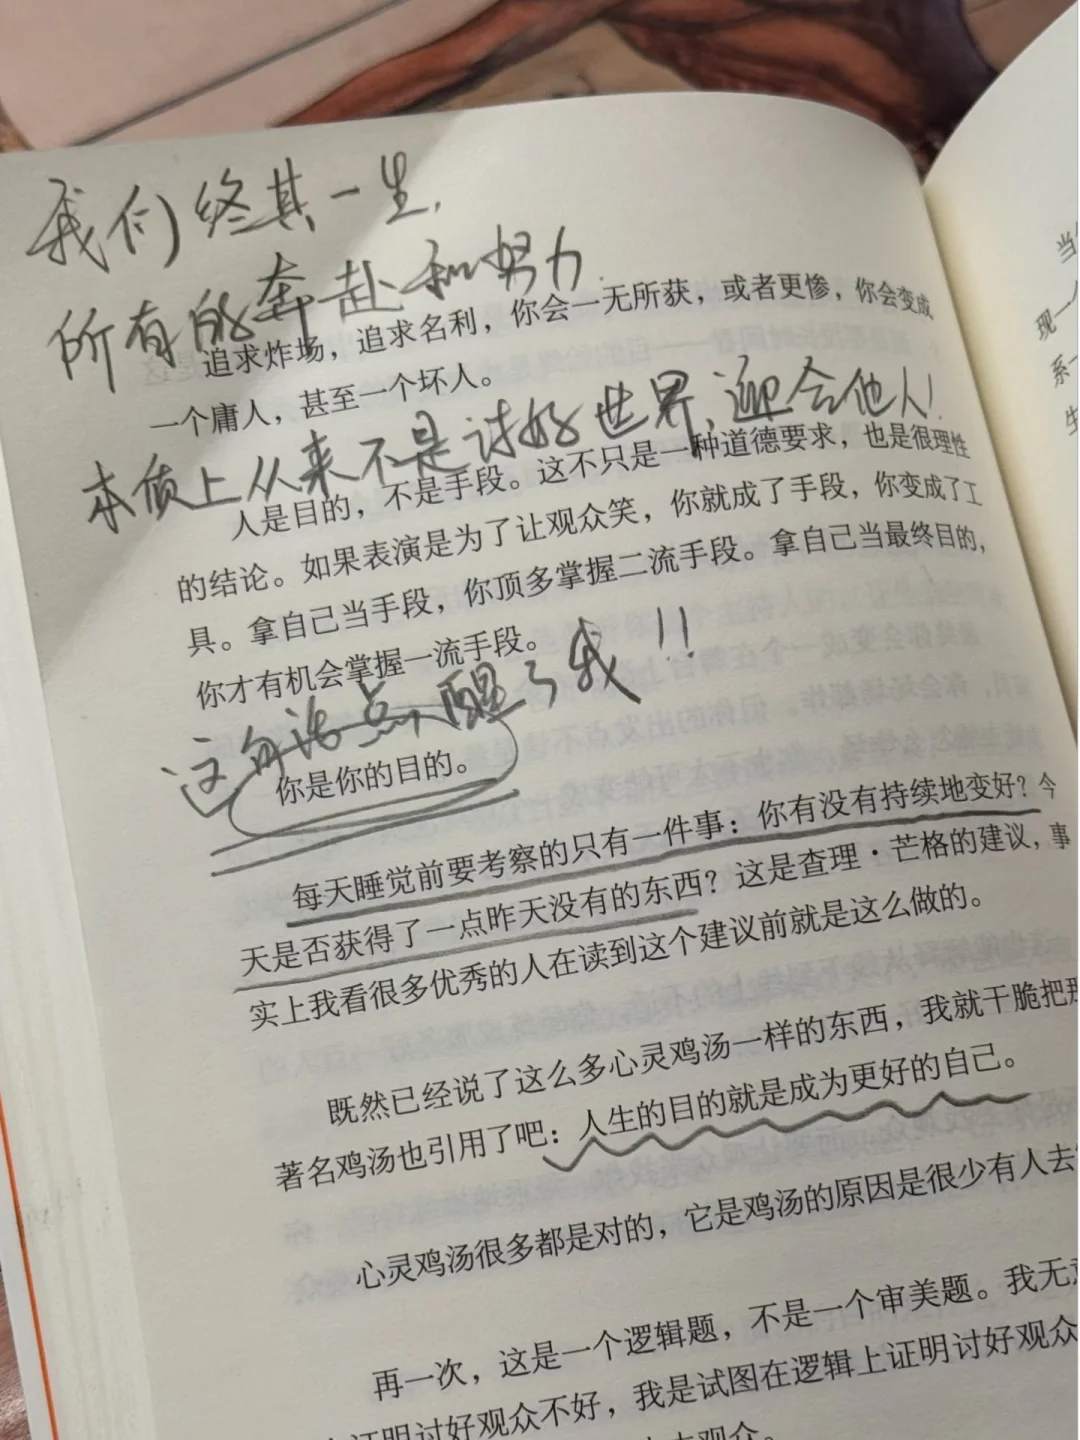 我们终其一生，
所有的奔赴和努力
追求炸场，追求名利，你会一无所获，或者更惨，你会变成
一个庸人，甚至一个坏人。
本质上从来不是讨好世界，迎合他人！
人是目的，不是手段。这不只是一种道德要求，也是很理性
的结论。如果表演是为了让观众笑，你就成了手段，你变成了工
具。拿自己当手段，你顶多掌握二流手段。拿自己当最终目的，
你才有机会掌握一流手段。
这句话点醒了我！！
你是你的目的。
每天睡觉前要考察的只有一件事：你有没有持续地变好？今
天是否获得了一点昨天没有的东西？这是查理·芒格的建议，事
实上我看很多优秀的人在读到这个建议前就是这么做的。
既然已经说了这么多心灵鸡汤一样的东西，我就干脆把那
著名鸡汤也引用了吧：人生的目的就是成为更好的自己。
心灵鸡汤很多都是对的，它是鸡汤的原因是很少有人去
再一次，这是一个逻辑题，不是一个审美题。我无意
证明讨好观众不好，我是试图在逻辑上证明讨好观众
观众。
当
现一
系一
生